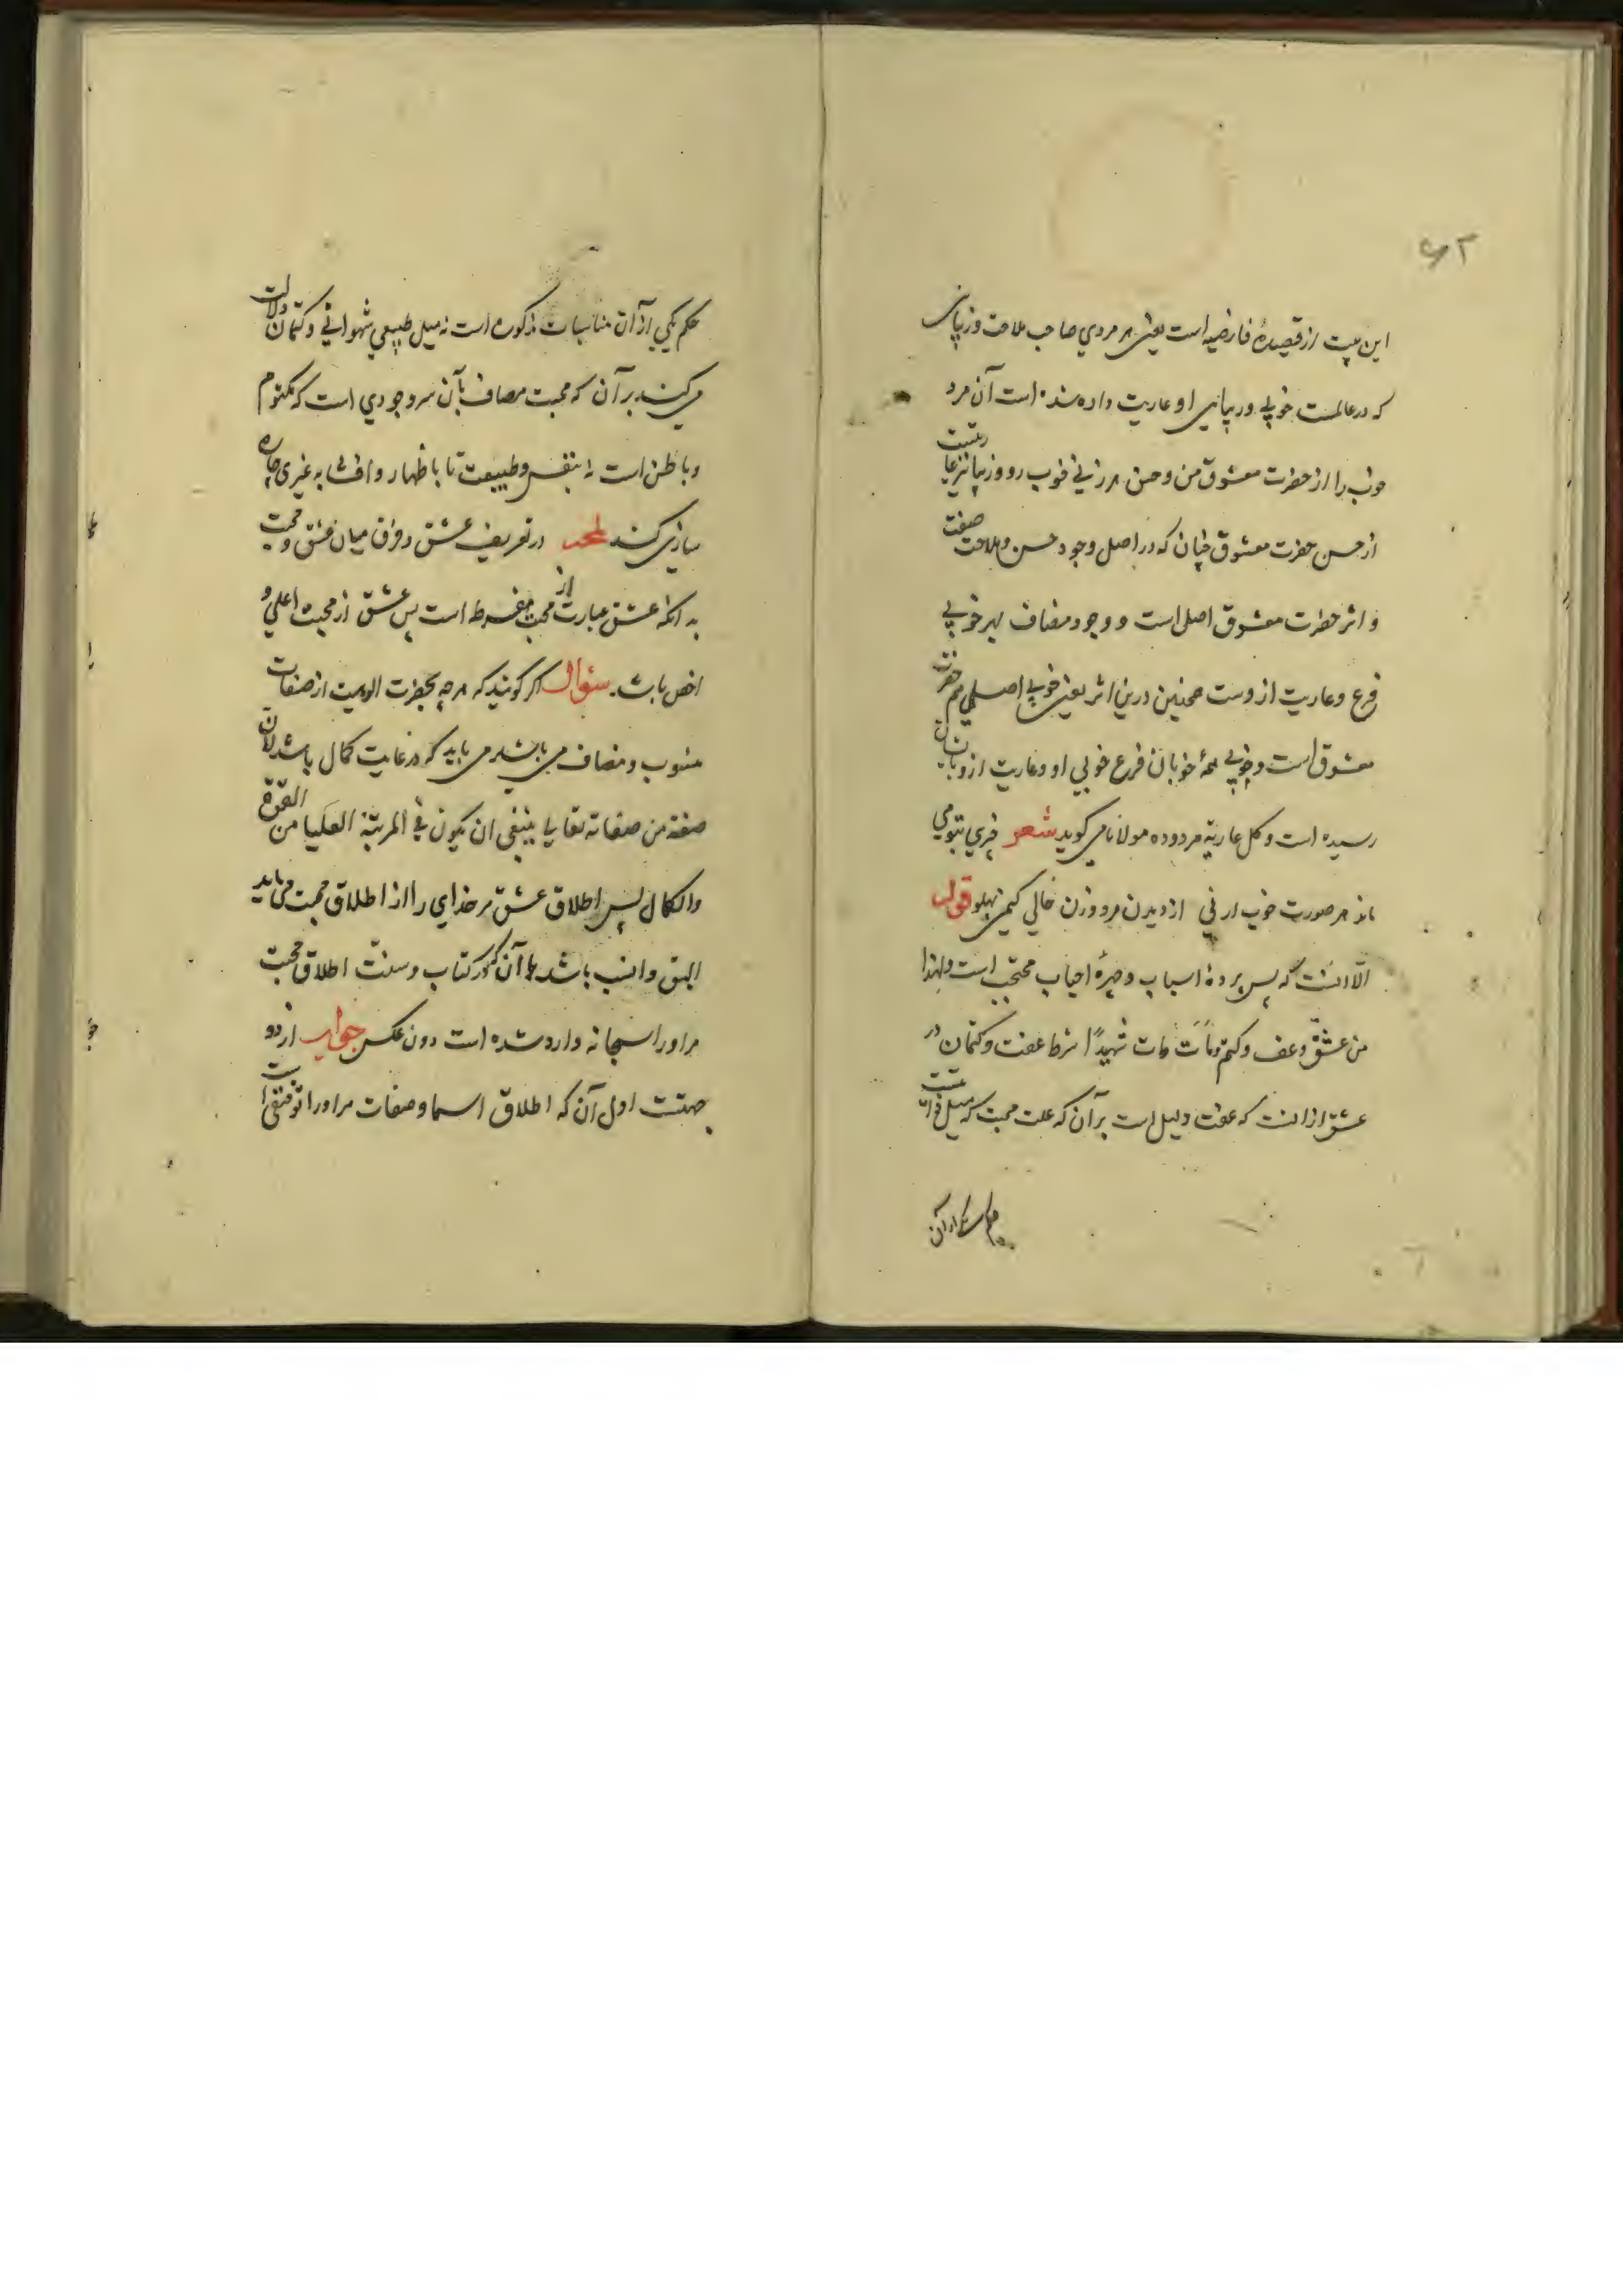 ۶۲
این بیت از قصیدهٔ فارضیه است یعنی هر مردی صاحب ملاحت و زیبایی
که در عالمست خوبی و زیبایی او عاریت داده شده است آن مرد
خوب را از حضرت معشوق من و حسن هر زنی خوب رو و زیبا نیز عاریتست
از حسن حضرت معشوق چنان که در اصل وجود حسن و ملاحت صفت
و اثر حضرت معشوق اصلی است و وجود مضاف بهر خوبی
فرع و عاریت ازوست همچنین درین اثر یعنی خوبی اصلی هم حضرت
معشوق است و خوبی همهٔ خوبان فرع خوبی او و عاریت ازو بانشان
رسیده است و کل عاریة مردوده مولانا می کوید شعر
هر صورت خوب ار نی از دیدن مرد و زن خالی کنمی پهلو قوله
الا انست که پس پردهٔ اسباب و چهرهٔ احباب محتجب است ولهذا
من عشق وعف وکتم ومات مات شهیدًا شرط عفت و کتمان در
عشق از انست که عفت دلیل است بر آن که علت محبت که میل ذاتیست
حکم یکی از آن
حکم یکی از آن مناسبات مذکوره است نه میل طبیعی شهوانی و کتمان دلالت
می کند بر آن که محبت مضاف بآن سر وجودی است که مکتوم
و باطن است نه بنفس و طبیعت تا باظهار و افشا به غیری چاره
سازی کند لمحه در تعریف عشق و فرق میان عشق و محبت
بدانکه عشق عبارت از محبت مفرط است پس عشق از محبت اعلی و
اخص باشد سؤال اکر کویند که هر چه بحضرت الوهیت از صفات
منسوب و مضاف می باشد می باید که در غایت کمال باشد لان
صفة من صفاته تعالی ینبغی ان یکون فی المرتبة العلیا من القوة
والکمال پس اطلاق عشق مر خدای را از اطلاق محبت می باید
الیق و انسب باشد با آن که در کتاب و سنت اطلاق محبت
مر او را سبحانه وارد شده است دون عکس جواب از دو
جهتست اول آن که اطلاق اسما و صفات مر او را توقیفی است